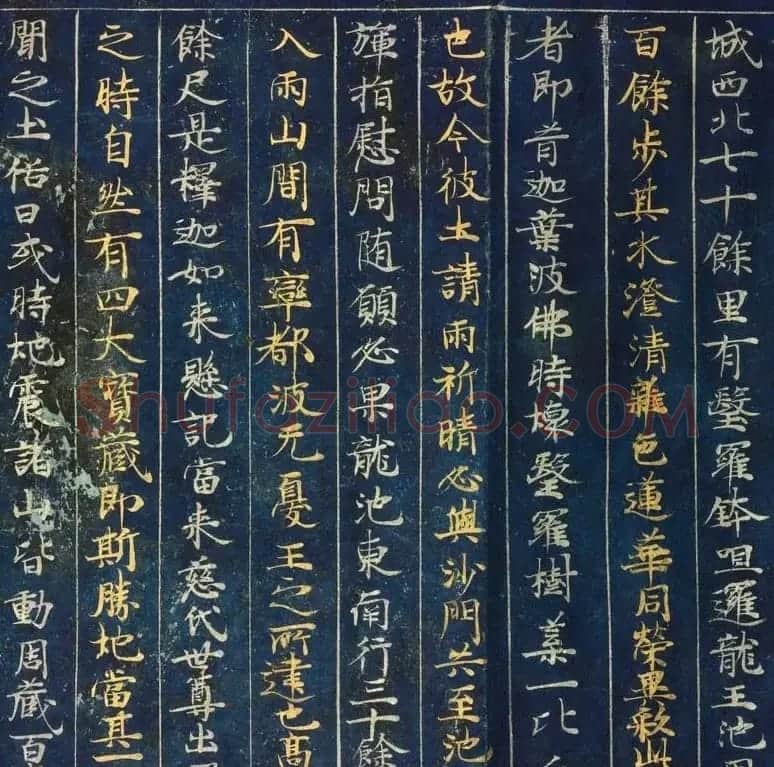 城西北七十餘里有毉羅鉢呾邏龍王池周
百餘步其水澄清雜色蓮華同榮異彩此
者即昔迦葉波佛時壞毉羅樹葉一比
也故今彼土請雨祈晴必與沙門共至池
彈指慰問随願必果龍池東南行三十餘
入兩山間有窣都波无憂王之所建也高
餘尺是釋迦如来懸記當来慈氏世尊出
之時自然有四大寶藏即斯勝地當其一
聞之土俗曰或時地震諸山皆動周藏百
Shufaziliao.COM